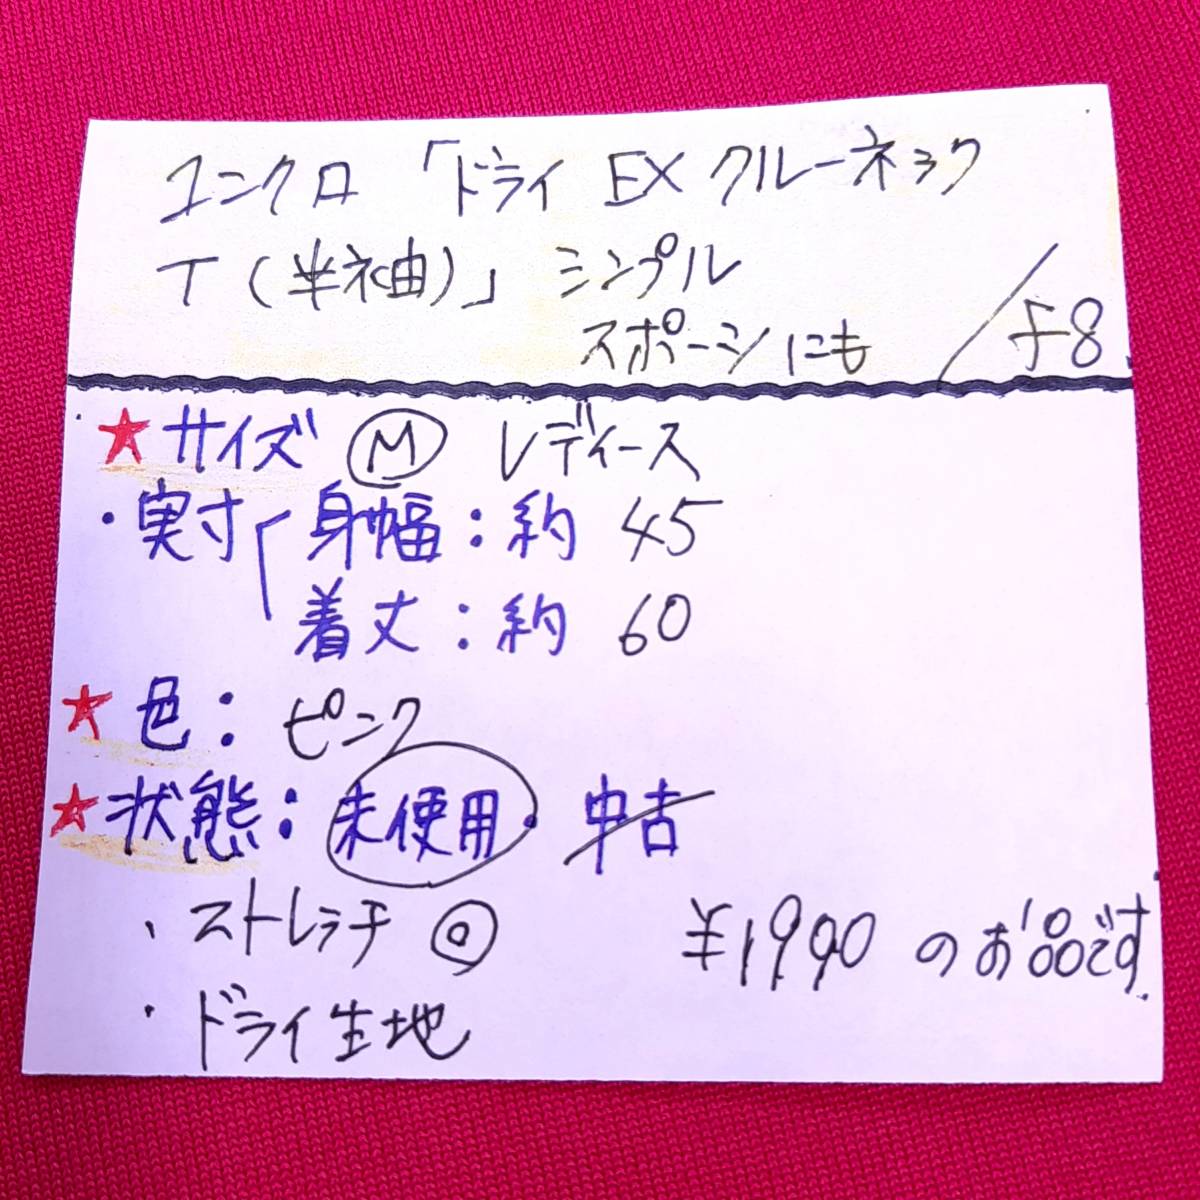 ユニクロ「ドライ EX クルーネック
T(半袖)」シンプル
スポーツにも /F8
★サイズ Ⓜ レディース
・実寸「身幅:約 45
着丈:約 60
★色:ピンク
★状態:未使用・中古
・ストレッチ ◎
・ドライ生地
¥1990 のお品です